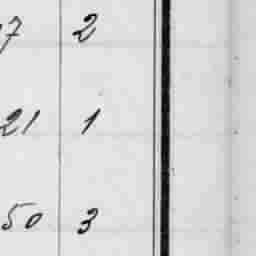 7 2
21 1
50 3